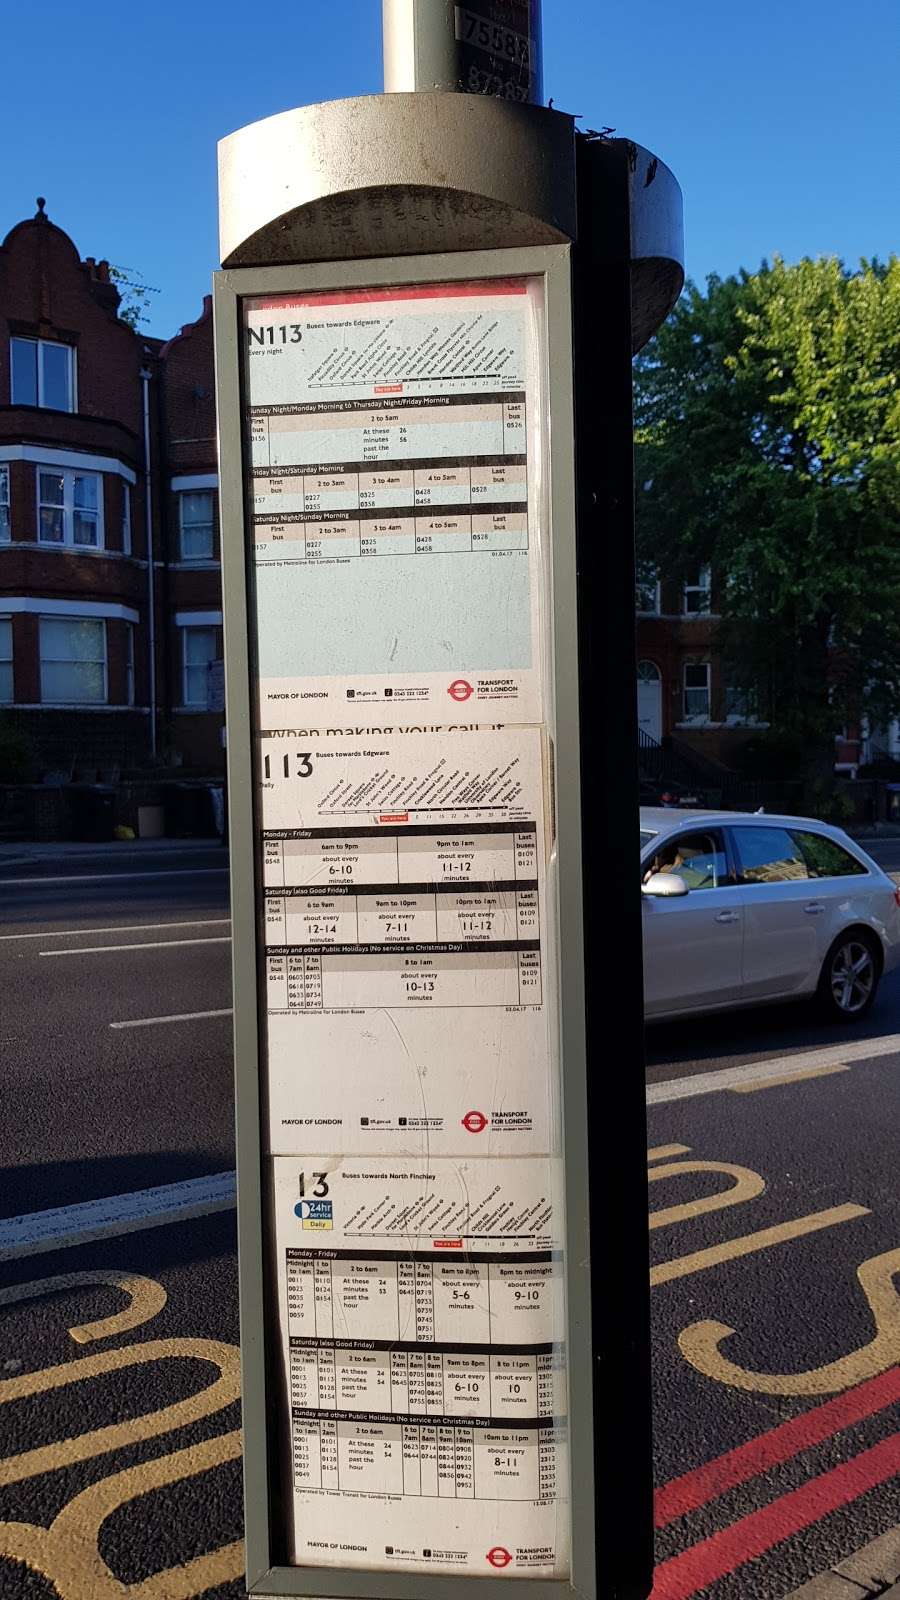 75587
87287
N113 Buses towards Edgware
Every night
You are here
off peak
Sunday Night/Monday Morning to Thursday Night/Friday Morning
First bus
2 to 5am
Last bus
0156
At these minutes past the hour
26
56
0526
Friday Night/Saturday Morning
First bus
2 to 3am
3 to 4am
4 to 5am
Last bus
0157
0227
0325
0428
0528
0255
0358
0458
Saturday Night/Sunday Morning
First bus
2 to 3am
3 to 4am
4 to 5am
Last bus
0157
0227
0325
0428
0528
0255
0358
0458
Operated by Metroline for London Buses
01.04.17 116
MAYOR OF LONDON
tfl.gov.uk
0343 222 1234*
TRANSPORT FOR LONDON
EVERY JOURNEY MATTERS
When making your call, it
113 Buses towards Edgware
Daily
You are here
Monday - Friday
First bus
6am to 9pm
9pm to 1am
Last buses
0548
about every 6-10 minutes
about every 11-12 minutes
0109
0121
Saturday (also Good Friday)
First bus
6 to 9am
9am to 10pm
10pm to 1am
Last buses
0548
about every 12-14 minutes
about every 7-11 minutes
about every 11-12 minutes
0109
0121
Sunday and other Public Holidays (No service on Christmas Day)
First bus
6 to 7am
7 to 8am
8 to 1am
Last buses
0548 0603 0703
0618 0719
0633 0734
0648 0749
about every 10-13 minutes
0109
0121
Operated by Metroline for London Buses
MAYOR OF LONDON
tfl.gov.uk
0343 222 1234*
TRANSPORT FOR LONDON
EVERY JOURNEY MATTERS
13 Buses towards North Finchley
24hr service
Daily
You are here
Monday - Friday
Midnight to 1am
1 to 2am
2 to 6am
6 to 7am
7 to 8am
8am to 8pm
8pm to midnight
0011 0110
0023 0124
0035 0154
0047
0059
At these minutes past the hour
24
53
0623 0704
0645 0719
0733
0739
0745
0751
0757
about every 5-6 minutes
about every 9-10 minutes
Saturday (also Good Friday)
Midnight to 1am
1 to 2am
2 to 6am
6 to 7am
7 to 8am
8 to 9am
9am to 8pm
8 to 11pm
0001 0101
0013 0113
0025 0128
0037 0154
0049
At these minutes past the hour
24
54
0623 0705 0810
0645 0725 0825
0740 0840
0755 0855
about every 6-10 minutes
about every 10 minutes
Sunday and other Public Holidays (No service on Christmas Day)
Midnight to 1am
1 to 2am
2 to 6am
6 to 7am
7 to 8am
8 to 9am
9 to 10am
10am to 11pm
0001 0101
0013 0113
0025 0128
0037 0154
0049
At these minutes past the hour
24
54
0623 0714 0804 0908
0644 0744 0824 0920
0844 0932
0856 0942
0952
about every 8-11 minutes
2303
2312
2325
2335
2347
2359
Operated by Tower Transit for London Buses
MAYOR OF LONDON
tfl.gov.uk
0343 222 1234*
TRANSPORT FOR LONDON